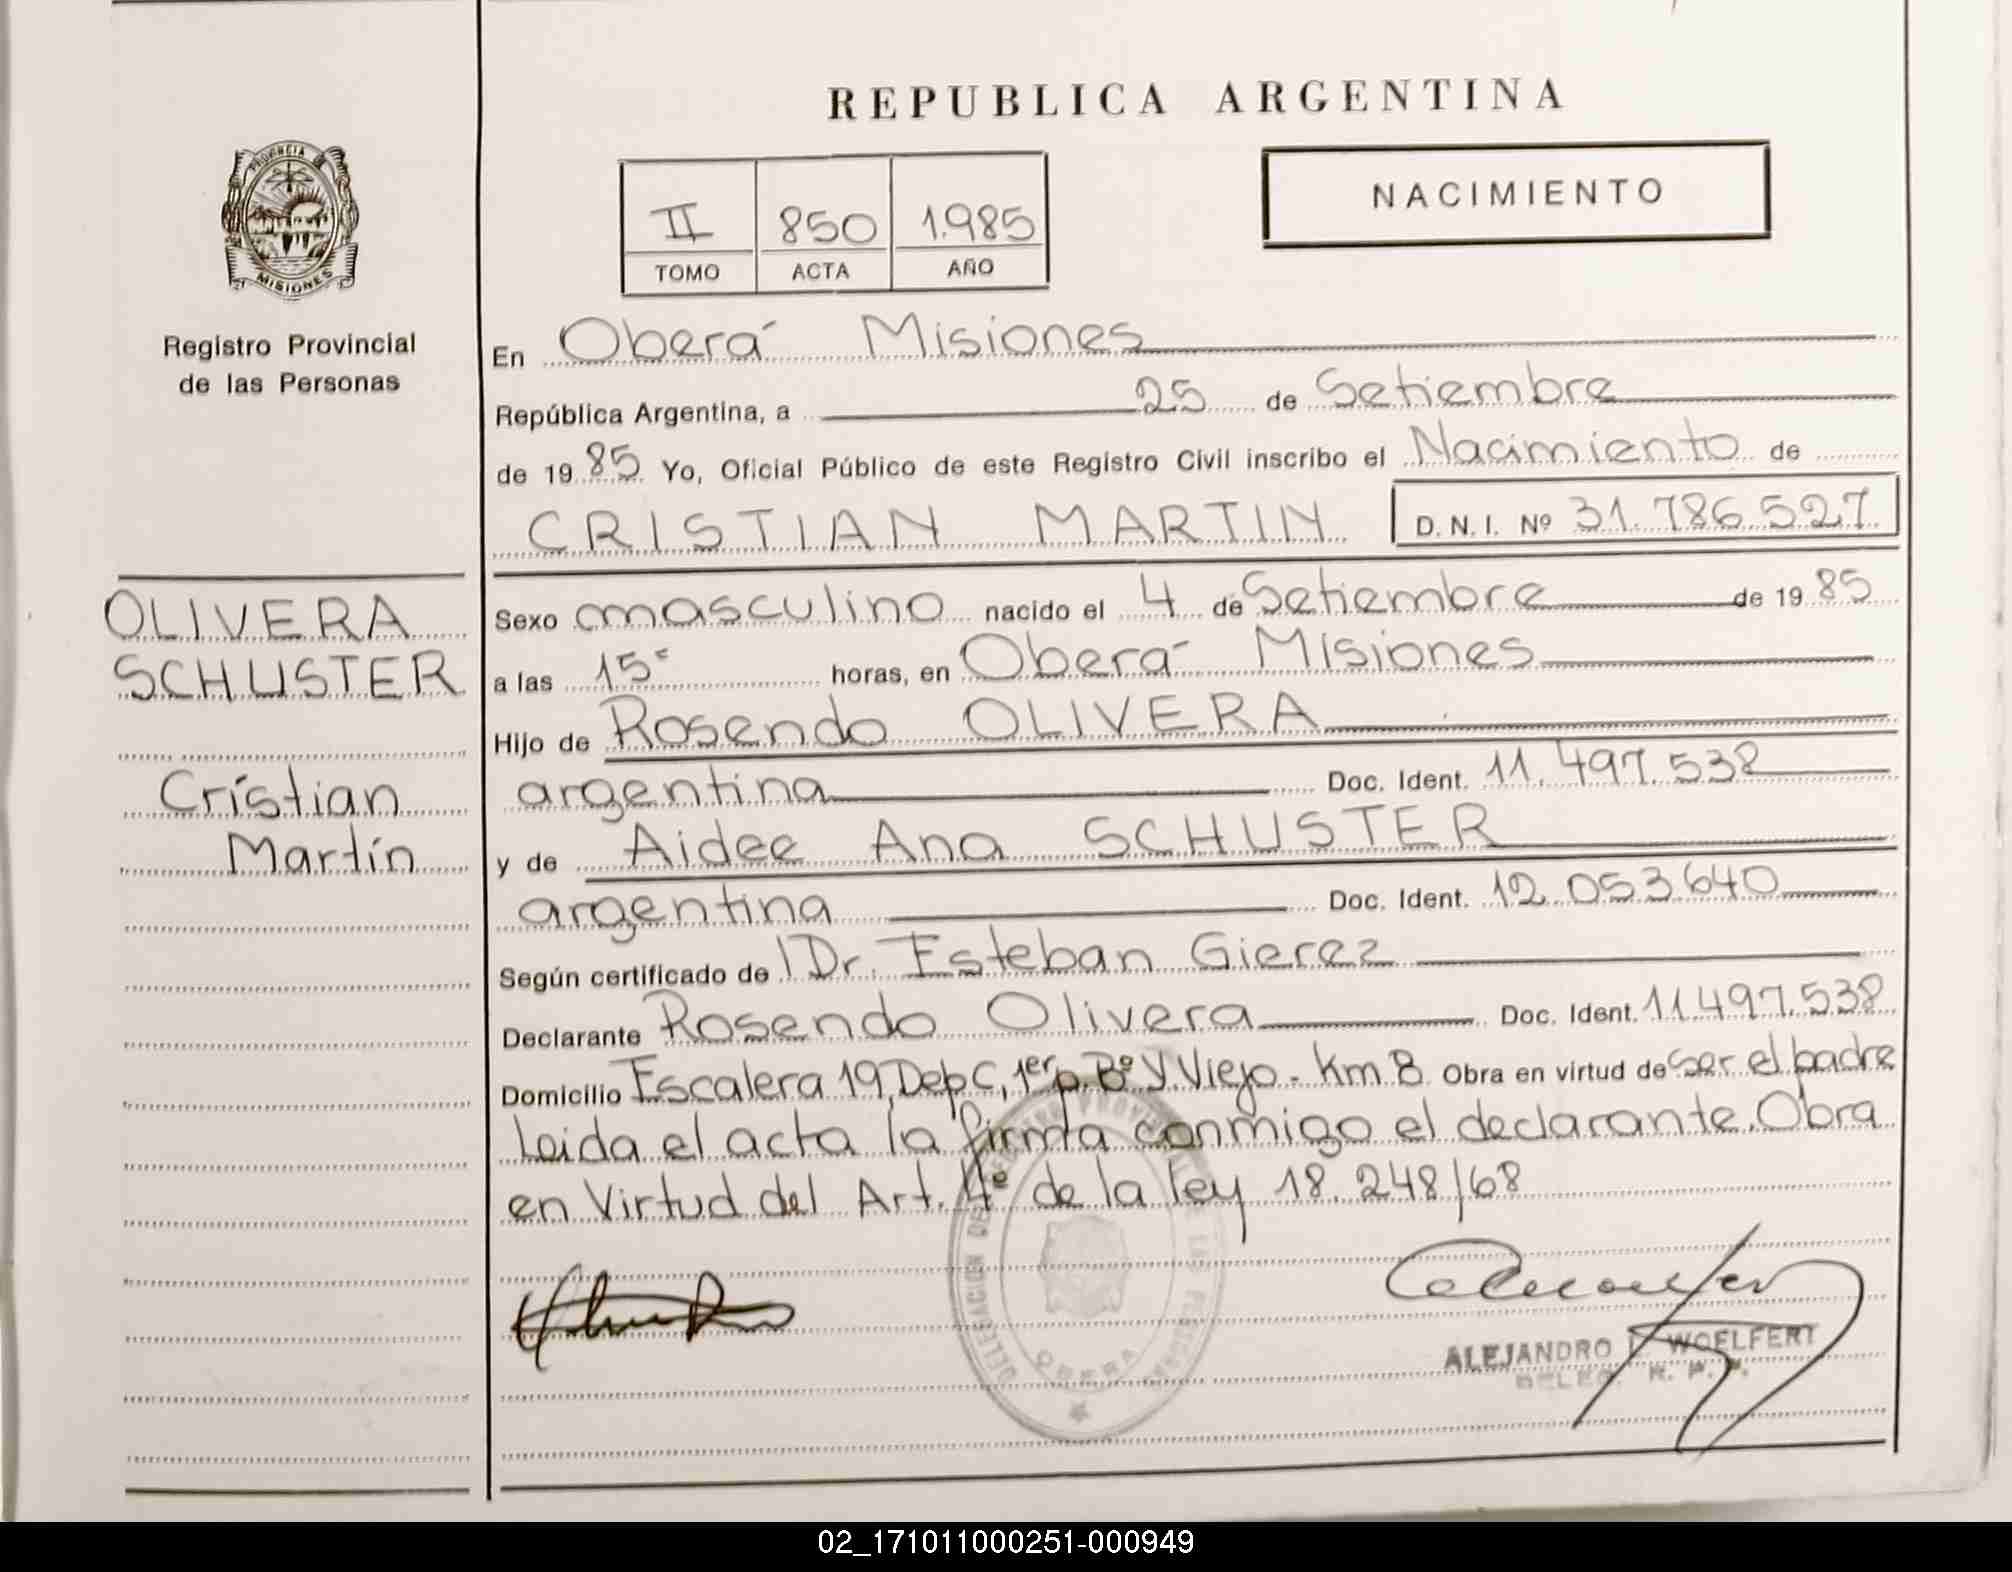 REPUBLICA ARGENTINA
PROVINCIA
MISIONES
Registro Provincial
de las Personas
II 850 1.985
TOMO ACTA AÑO
NACIMIENTO
En Oberá Misiones
República Argentina, a 25 de Setiembre
de 19 85 Yo, Oficial Público de este Registro Civil inscribo el Nacimiento de
CRISTIAN MARTIN D.N.I. Nº 31.786.527
OLIVERA
SCHUSTER
Cristian
Martín
Sexo masculino nacido el 4 de Setiembre de 19 85
a las 15 horas, en Oberá Misiones
Hijo de Rosendo OLIVERA
argentina Doc. Ident. 11.497.538
y de Aidee Ana SCHUSTER
argentina Doc. Ident. 12.053.640
Según certificado de Dr. Esteban Gierez
Declarante Rosendo Olivera Doc. Ident. 11.497.538
Domicilio Escalera 19, Dep C, 1er p. Bº Y. Viejo - Km 8 Obra en virtud de ser el padre
Leida el acta la firma conmigo el declarante. Obra
en Virtud del Art. 4º de la ley 18.248/68
DELEGACION DEL REGISTRO PROVINCIAL DE LAS PERSONAS
OBERA
ALEJANDRO L. WOELFERT
DELEG. R. P. P.
02_171011000251-000949